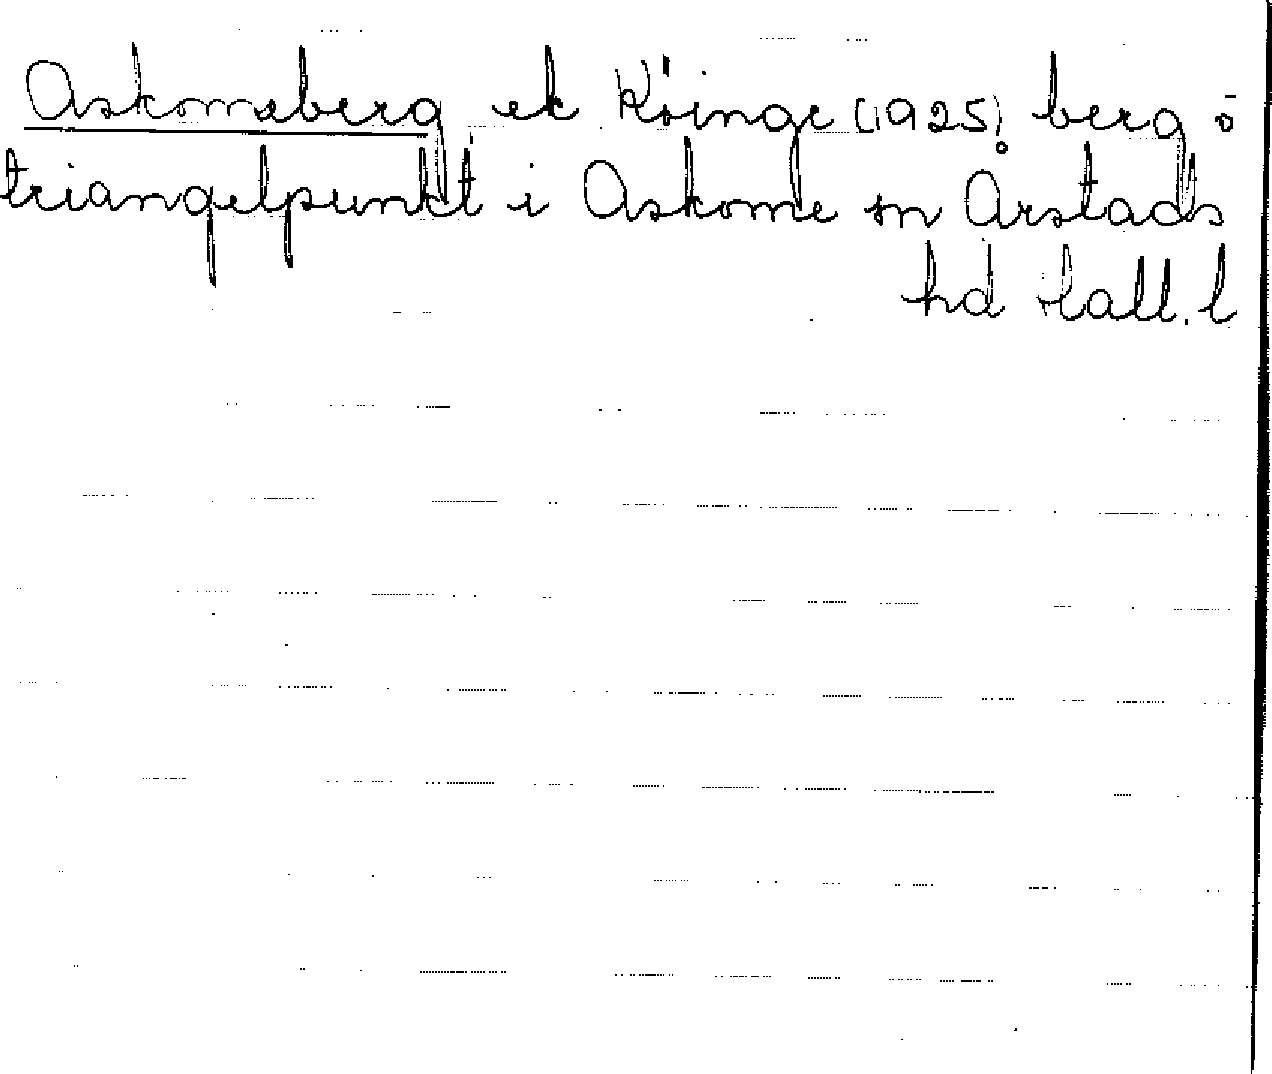 Askomeberg ek Köinge (1925) berg o
triangelpunkt i Askome sn Årstads
hd Hall. l